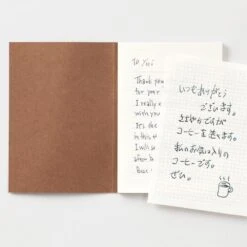 To Yuri
Thank you
for your
I really e
with you
It's the
in this
I will s
いつもありがとう
ございます。
ささやかですが
コーヒーを送ります。
私のお気に入りの
コーヒーです。
ぜひ。